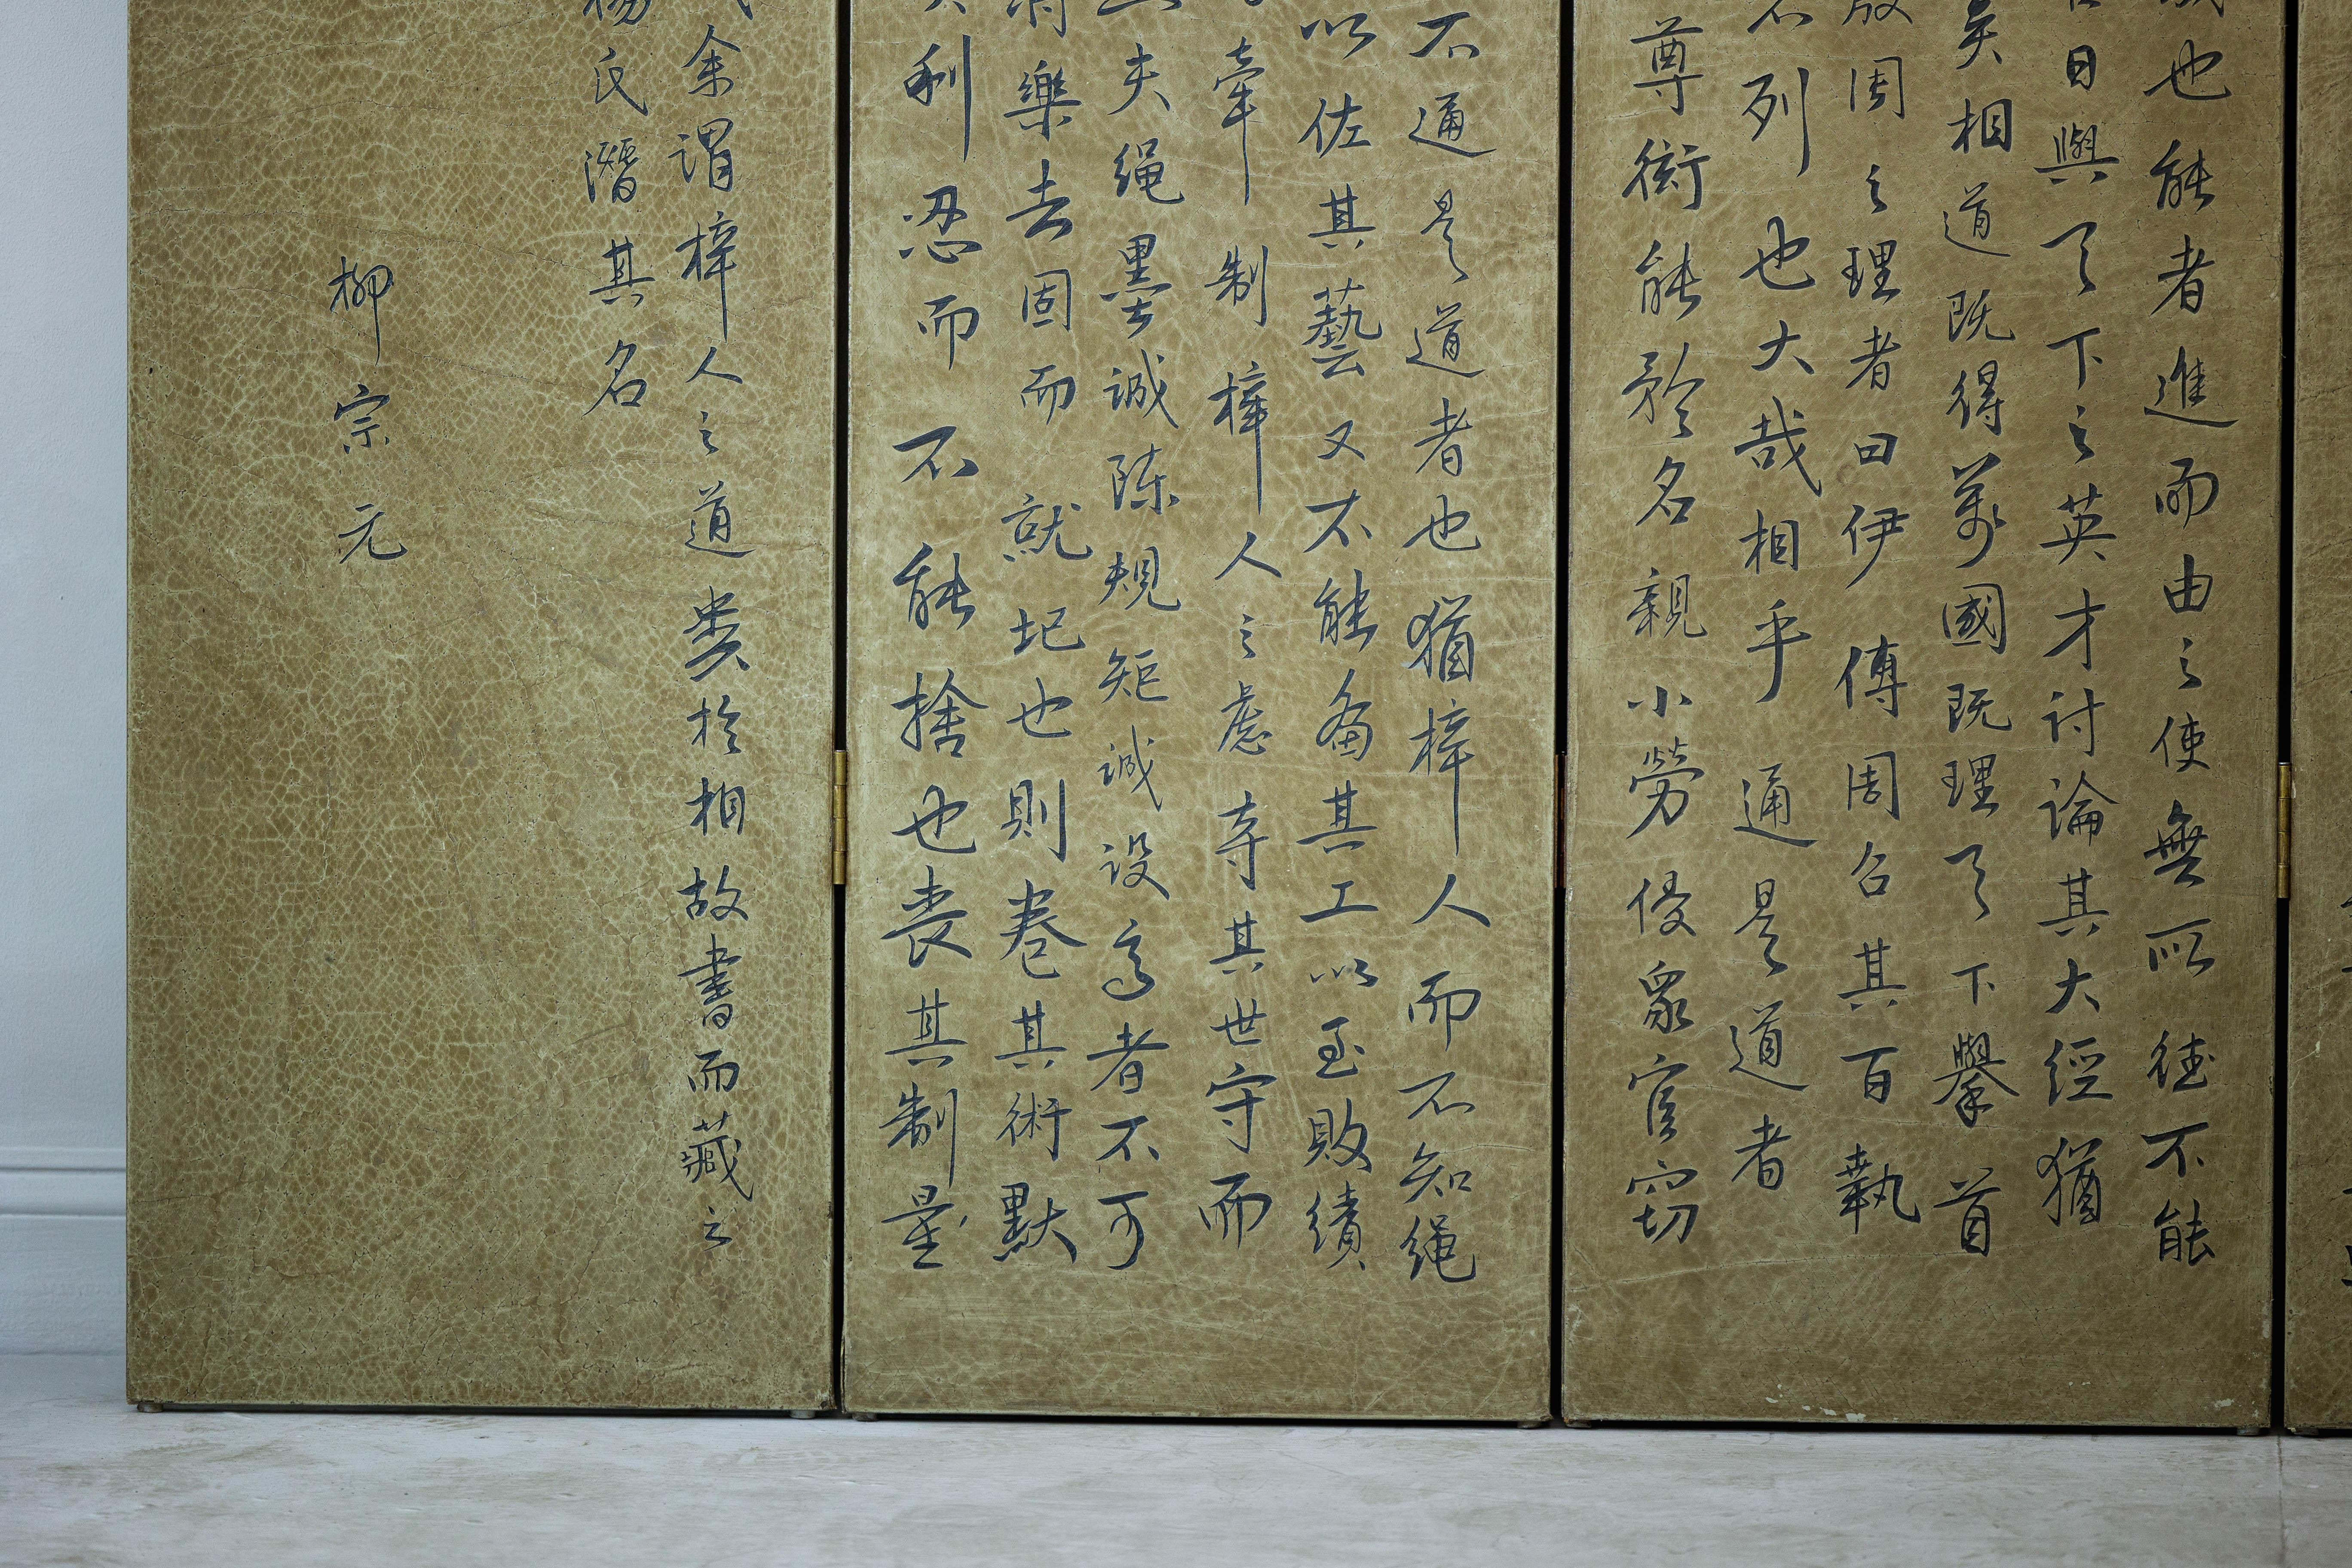 也能者進而由之使無所德不能
日與天下之英才討論其大經猶
矣相道既得萬國既理天下舉首
殷周之理者曰伊傅周召其百執
不列也大哉相乎通是道者
尊衒能矜名親小勞侵眾官窃
不通是道者也猶梓人而不知绳
以佐其藝又不能备其工以至敗績
牽制梓人之慮夺其世守而
夫绳墨誠陈規矩誠设高者不可
將樂去固而就圮也則卷其術默
利忍而不能捨也喪其制量
余謂梓人之道类於相故書而藏之
楊氏潛其名
柳宗元